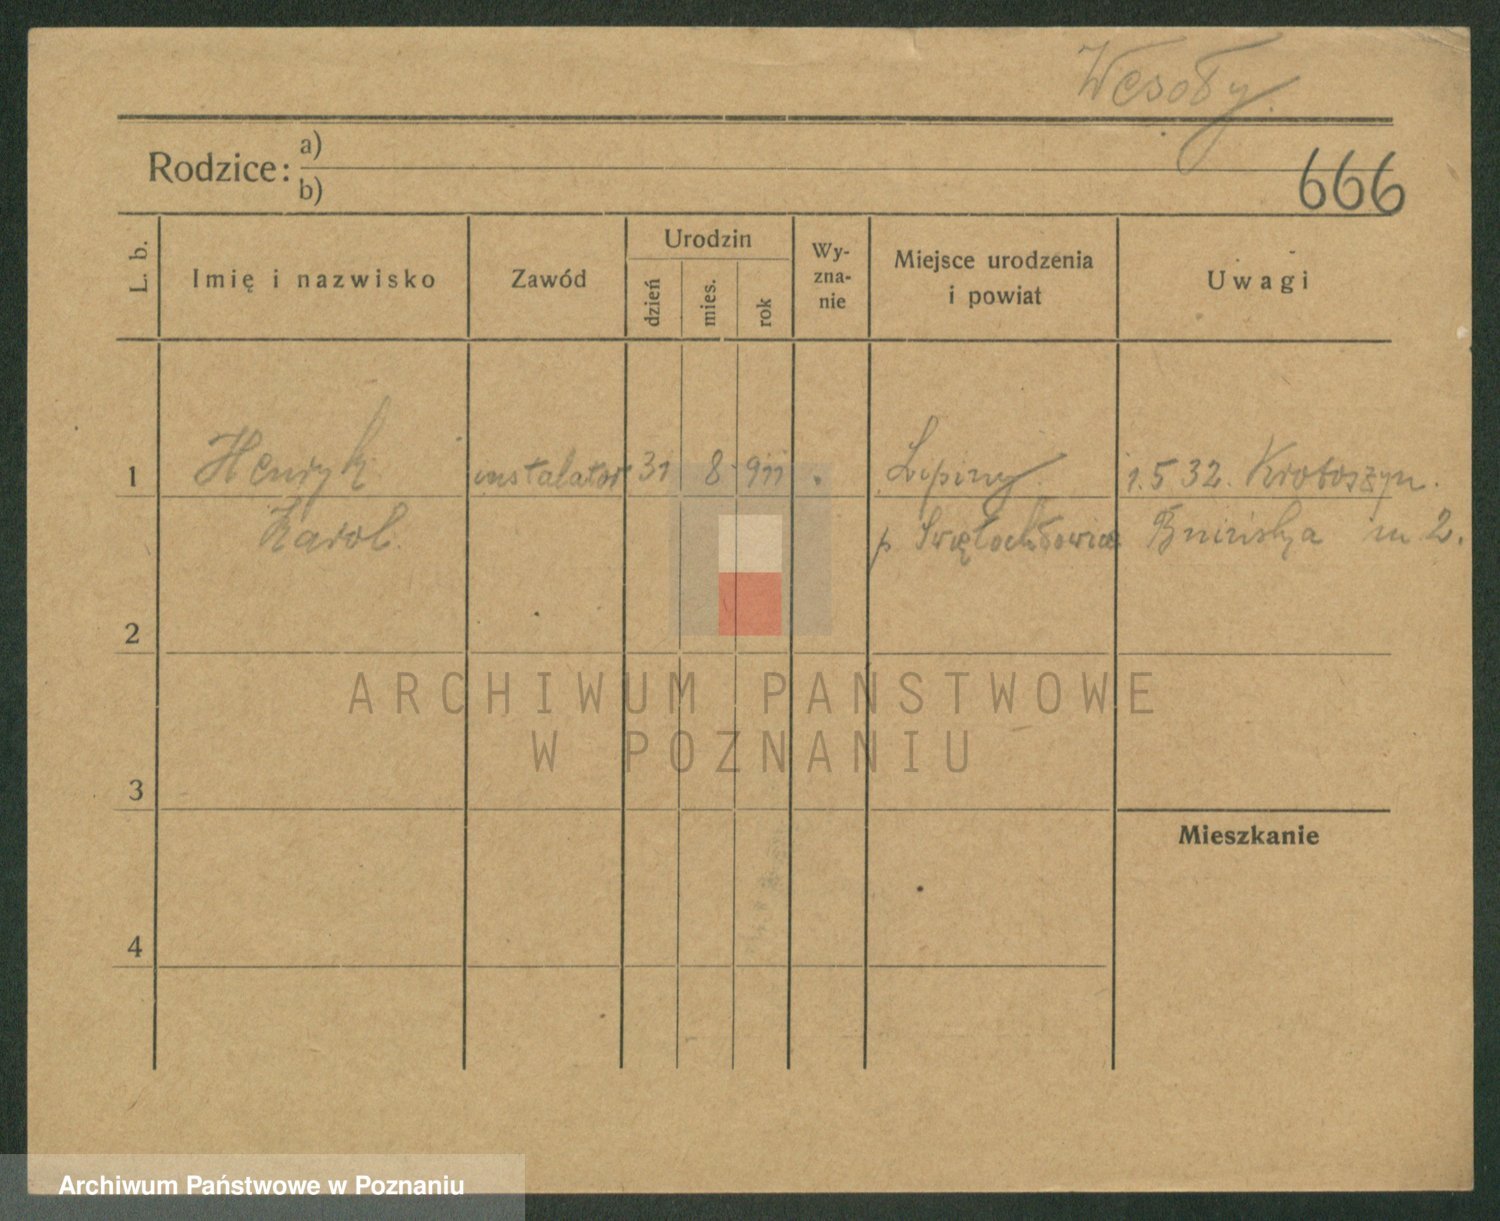 Wesoły.
Rodzice: a)
b)
666
L. b.
Imię i nazwisko
Zawód
Urodzin
dzień
mies.
rok
Wy-
zna-
nie
Miejsce urodzenia
i powiat
Uwagi
1 Henryk instalator 31 8 911 Lipiny 1.5 32. Krotoszyn.
Karol. p Święłochłowice Bnińska m 2.
2
3
4
Mieszkanie
ARCHIWUM PAŃSTWOWE
W POZNANIU
Archiwum Państwowe w Poznaniu